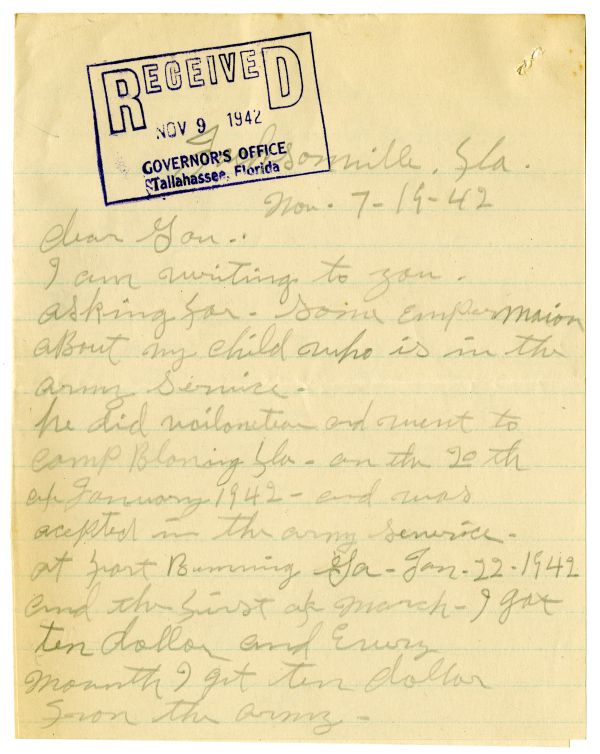 RECEIVED
NOV 9 1942
GOVERNOR'S OFFICE
Tallahassee, Florida
Jacksonville, Fla.
Nov. 7-19-42
dear Gov.:
I am writing to you.
asking for. some
about my child who is in the
army service.
he did and went to
camp Fla- on the 20th
of January 1942- and was
acepted in the army serverice.
at Fort Bunning Ga-Jan-22-1942
and the first of March- I got
ten dollar and Every
Mounth I get ten dollar
from the army-